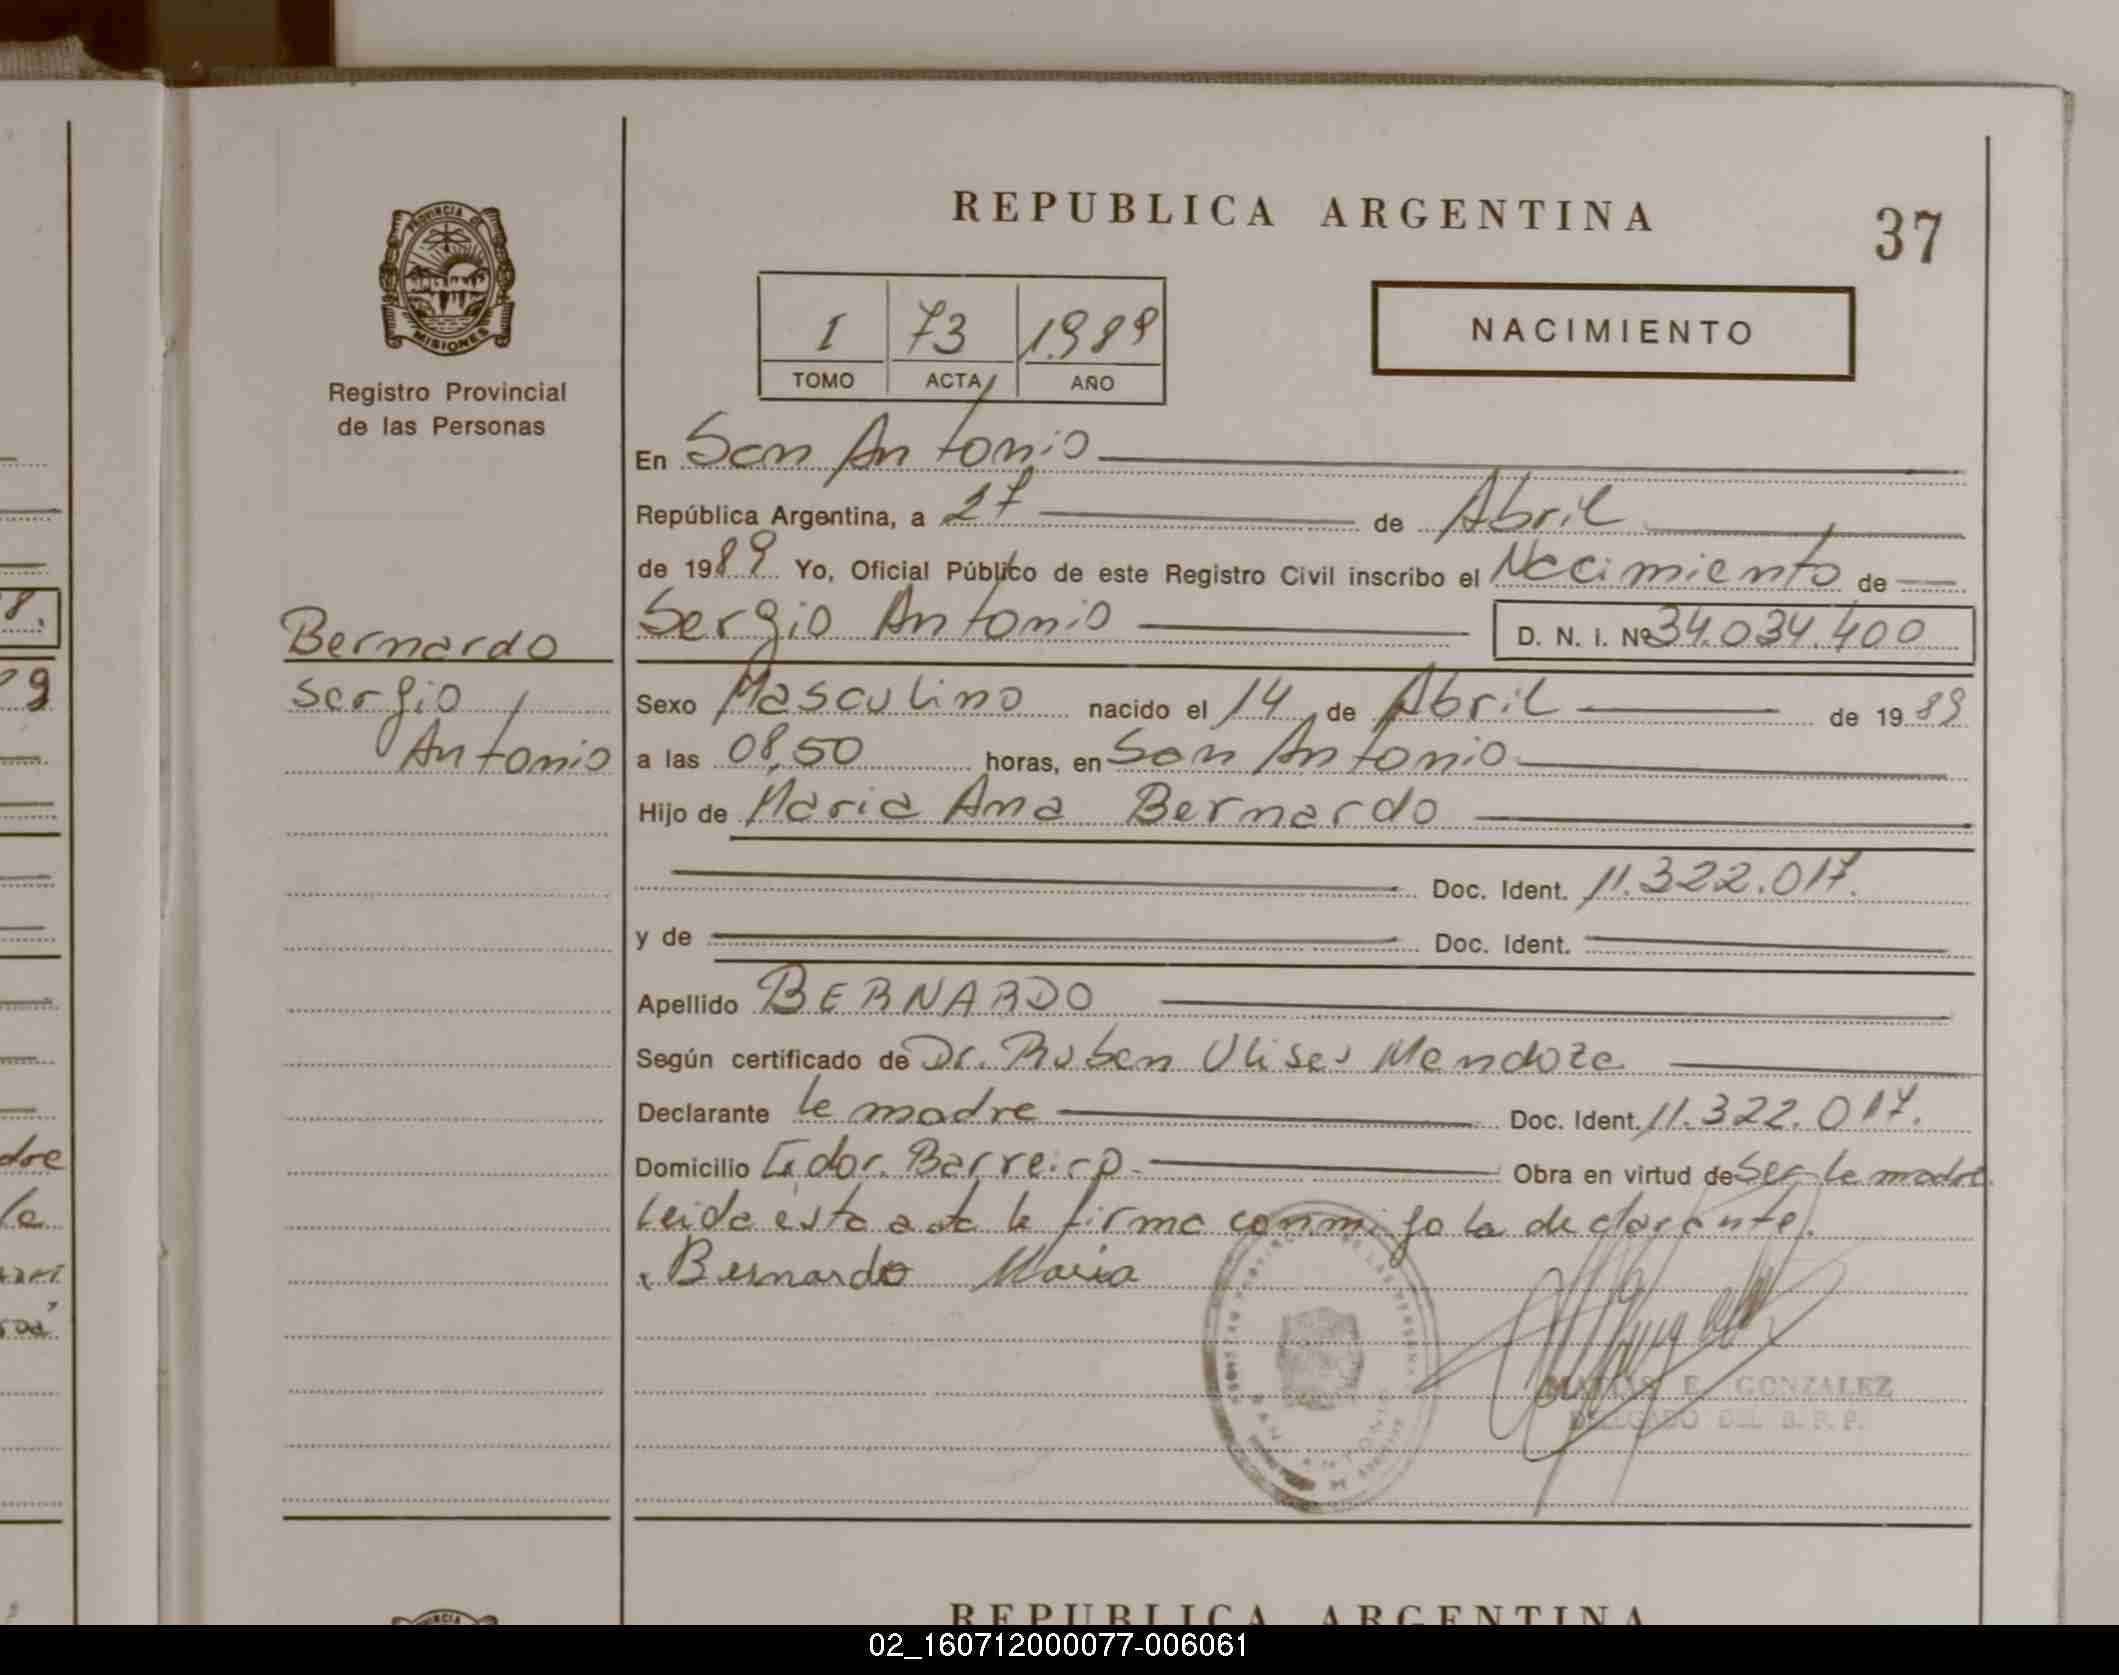 REPUBLICA ARGENTINA
37
PROVINCIA DE
MISIONES
Registro Provincial
de las Personas
I 73 1989
TOMO ACTA AÑO
NACIMIENTO
En San Antonio
República Argentina, a 27 de Abril
de 1989 Yo, Oficial Público de este Registro Civil inscribo el Nacimiento de
Bernardo
Sergio Antonio D. N. i. Nº 34.034.400
Sergio
Antonio
Sexo Masculino nacido el 14 de Abril de 1989
a las 08,50 horas, en San Antonio
Hijo de Maria Ana Bernardo
Doc. Ident. 11.322.017.
y de Doc. Ident.
Apellido BERNARDO
Según certificado de Dr. Ruben Ulises Mendoza
Declarante la madre Doc. Ident. 11.322.017.
Domicilio Gdor. Barreiro. Obra en virtud de Ser la madre
Leida esta acta la firma conmigo la declarante.
Bernardo Maria
SAN ANTONIO
MATIAS E. GONZALEZ
DELEGADO DEL R. P. P.
8.
9
dre
la
REPUBLICA ARGENTINA
02_160712000077-006061